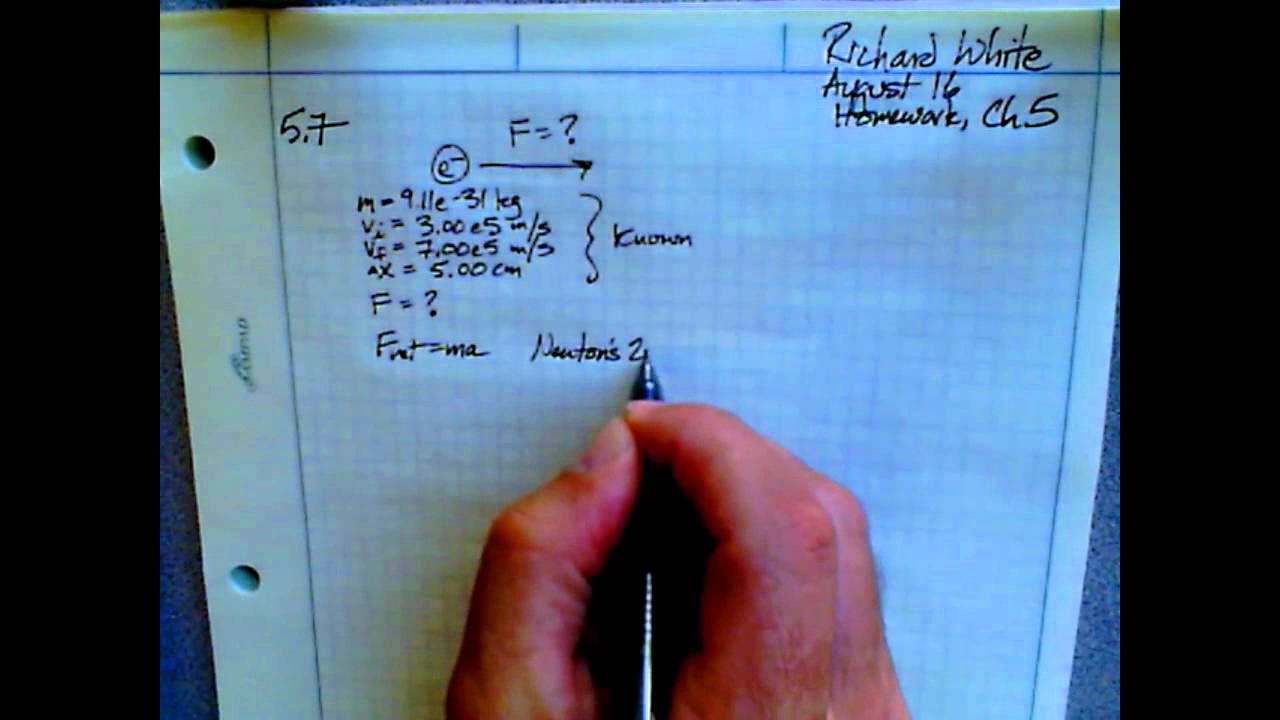 Richard White
August 16
Homework, Ch.5
5.7
F = ?
e-
m = 9.11e-31 kg
vi = 3.00e5 m/s
vf = 7.00e5 m/s
Δx = 5.00 cm
Known
F = ?
Fnet = ma Newton's 2